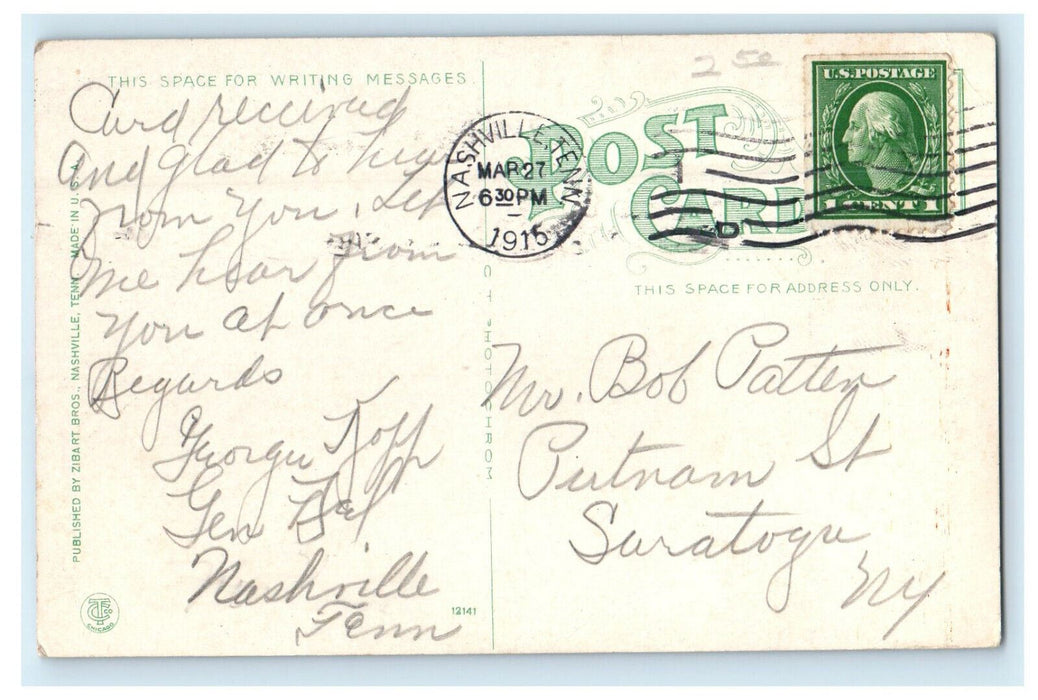 THIS SPACE FOR WRITING MESSAGES.
Card received
and glad to hear
from you. Let
me hear from
you at once
Regards
George Kopp
Gen Del
Nashville
Tenn
PUBLISHED BY ZIBART BROS., NASHVILLE, TENN. MADE IN U.S.A.
CHICAGO
12141
OF PHOTOCHROM
2 50
NASHVILLE, TENN
MAR 27
6 30 PM
1915
POST CARD
U.S. POSTAGE
1 CENT 1
THIS SPACE FOR ADDRESS ONLY.
Mr. Bob Patten
Putnam St
Saratoga
NY